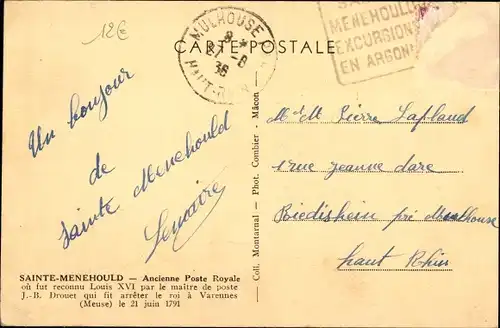 12€
MULHOUSE
8 *
-8
36
HAUT-R
CARTE POSTALE
MENEHOULD
EXCURSIONS
EN ARGONNE
Un bonjour
de
Sainte Menehould
Lemaire
Coll. Montarnal — Phot. Combier - Mâcon
Mr & M Pierre Lapland
1 rue jeanne darc
Riedisheim pré Mulhouse
haut Rhin
SAINTE-MENEHOULD — Ancienne Poste Royale
où fut reconnu Louis XVI par le maître de poste
J.-B. Drouet qui fit arrêter le roi à Varennes
(Meuse) le 21 juin 1791